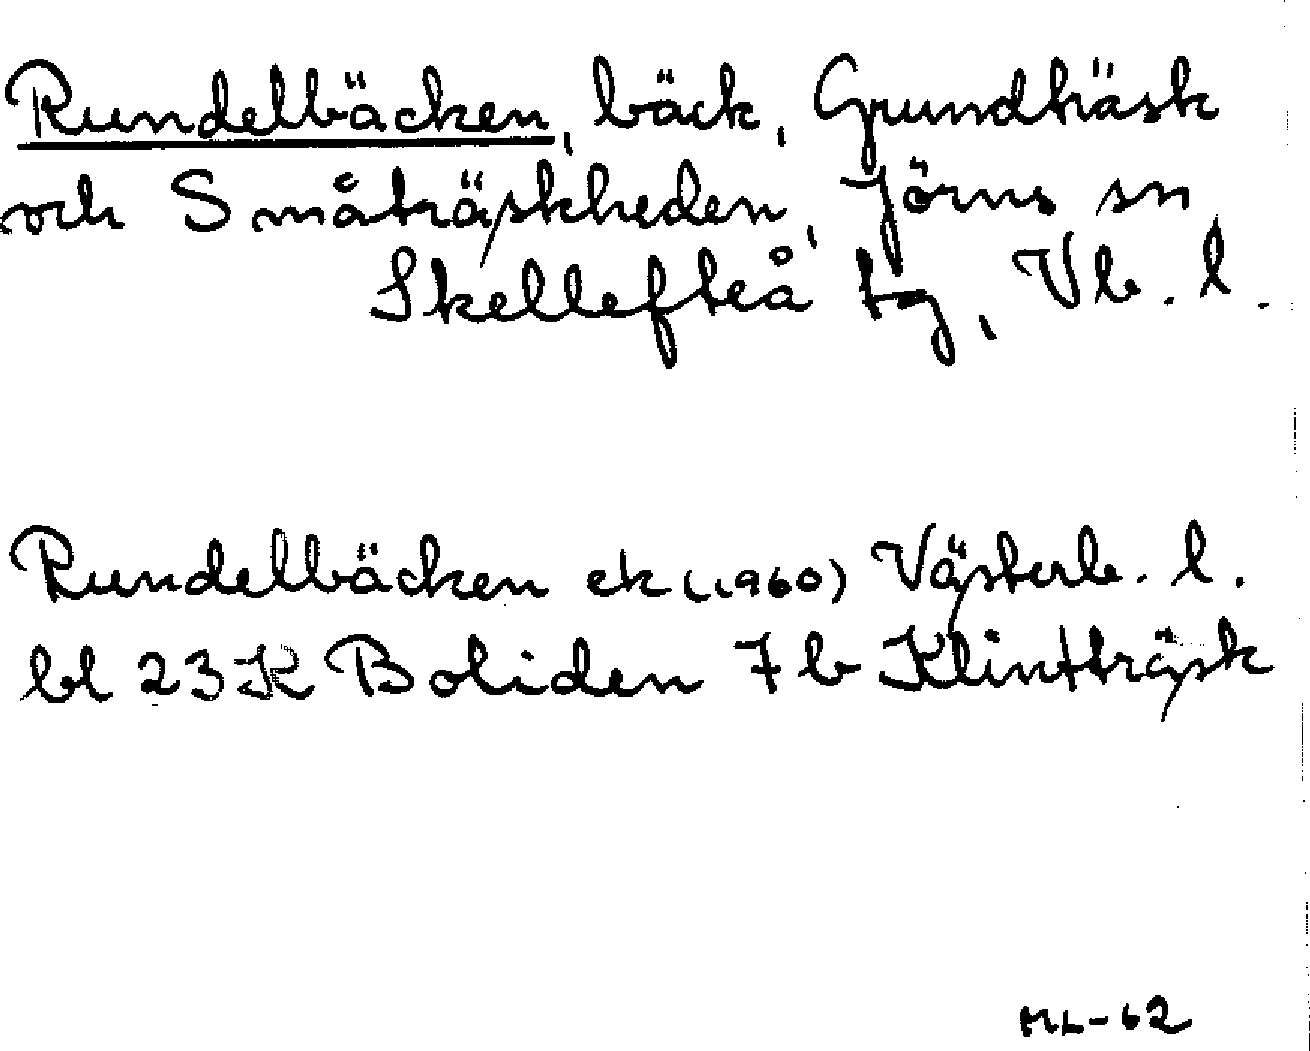 Rundelbäcken, bäck, Grundträsk
och Småträskheden, Jörns sn
Skellefteå tg, Vb. l.
Rundelbäcken ek (1960) Västerb. l.
bl 23K Boliden 7b Klintträsk
ML-62